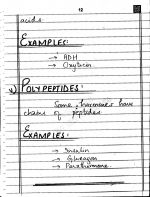 12
acids.
EXAMPLES:
→ ADH
→ Oxytocin
v) POLYPEPTIDES:
Some hormones have
chains of peptides
EXAMPLES:
→ Insulin
→ Glucagon
→ Parathormone